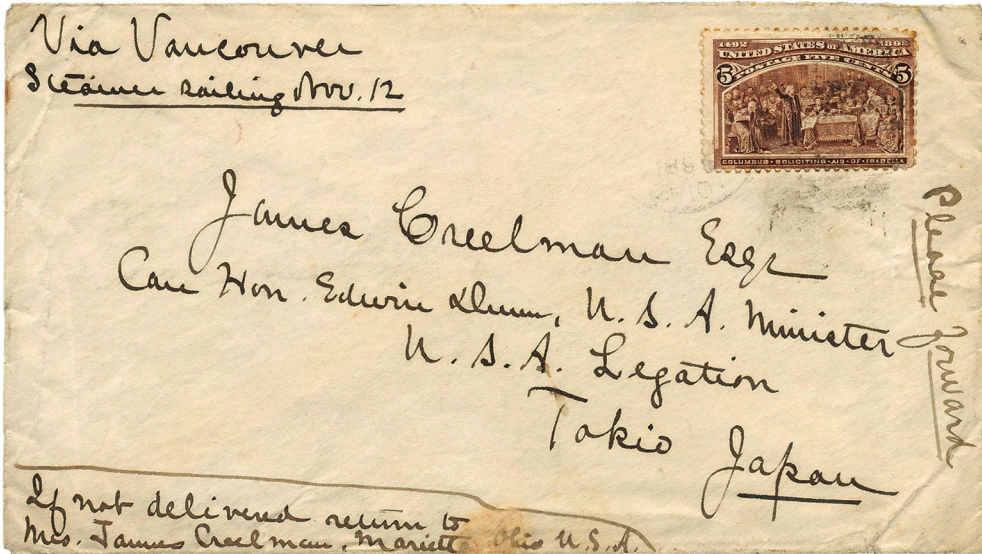 Via Vancouver
Steamer sailing Nov. 12
1492 1892
UNITED STATES OF AMERICA
5 POSTAGE FIVE CENTS 5
COLUMBUS SOLICITING AID OF ISABELLA
James Creelman Esqr
Care Hon. Edwin Dunn, U. S. A. Minister
U. S. A. Legation
Tokio Japan
Please Forward
If not delivered return to
Mrs. James Creelman, Marietta Ohio U. S. A.